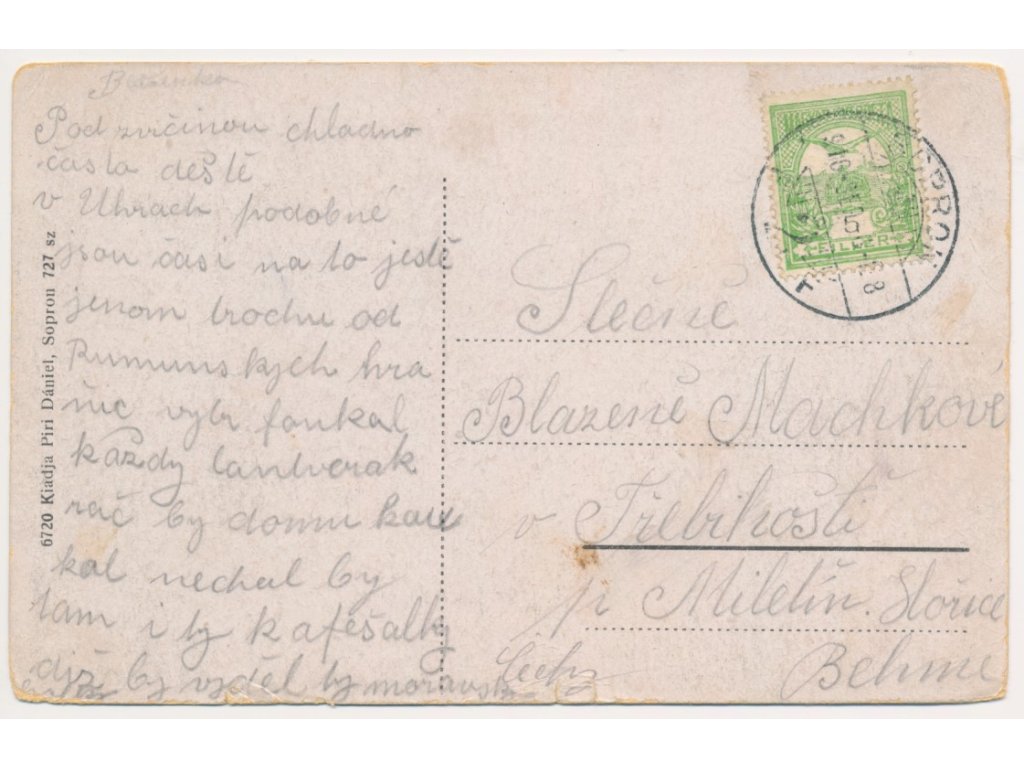 Pod zvičinou chladno
časta deště
v Uhrach podobné
jsou časi na to jestě
jenom trochu od
Rumunskych hra
nic vytr foukal
každy landverak
rač by domu kou
kal nechal by
tam i ty kafešalky
djž by vyděl ty moravsk
6720 Kiadja Piri Dániel, Sopron 727 sz
SOPRON
FILLER
Slečně
Blazeně Machkové
v Třebihošti
p Miletín. Hořice
Čechy Behme